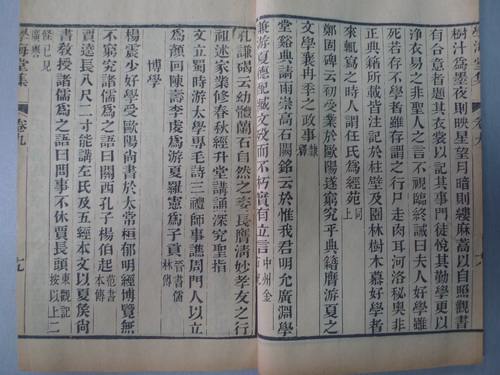 卷九
樹汁為墨夜則映星望月暗則縷麻蒿以自照觀書
有合意者題其衣裳以記其事門徒悅其勤學更以
淨衣易之非聖人之言不視臨終誡曰夫人好學雖
死若存不學者雖存謂之行尸走肉耳河洛秘奧非
正典籍所載皆注記於柱壁及園林樹木慕好學者
來輒寫之時人謂任氏為經苑同上
鄭固碑云初受業於歐陽遂窮究乎典籍膺游夏之
文學襄冉季之政事隸釋
堂谿典請雨崇高石闕銘云於惟我君明允廣淵學
兼游夏德配臧文歿而不朽實有立言中州金
孔謙碣云幼體蘭石自然之姿長膺清妙孝友之行
祖述家業修春秋經升堂講誦深究聖指
文立蜀時游太學專毛詩三禮師事譙周門人以立
為顏回陳壽李虔為游夏羅憲為子貢晉書儒林傳
博學
楊震少好學受歐陽尚書於太常桓郁明經博覽無
不窮究諸儒為之語曰關西孔子楊伯起范書本傳
賈逵長八尺二寸能講左氏及五經本文以夏侯尚
書教授諸儒為之語曰問事不休賈長頭東觀記按以上二
條已見
學海堂集 卷九